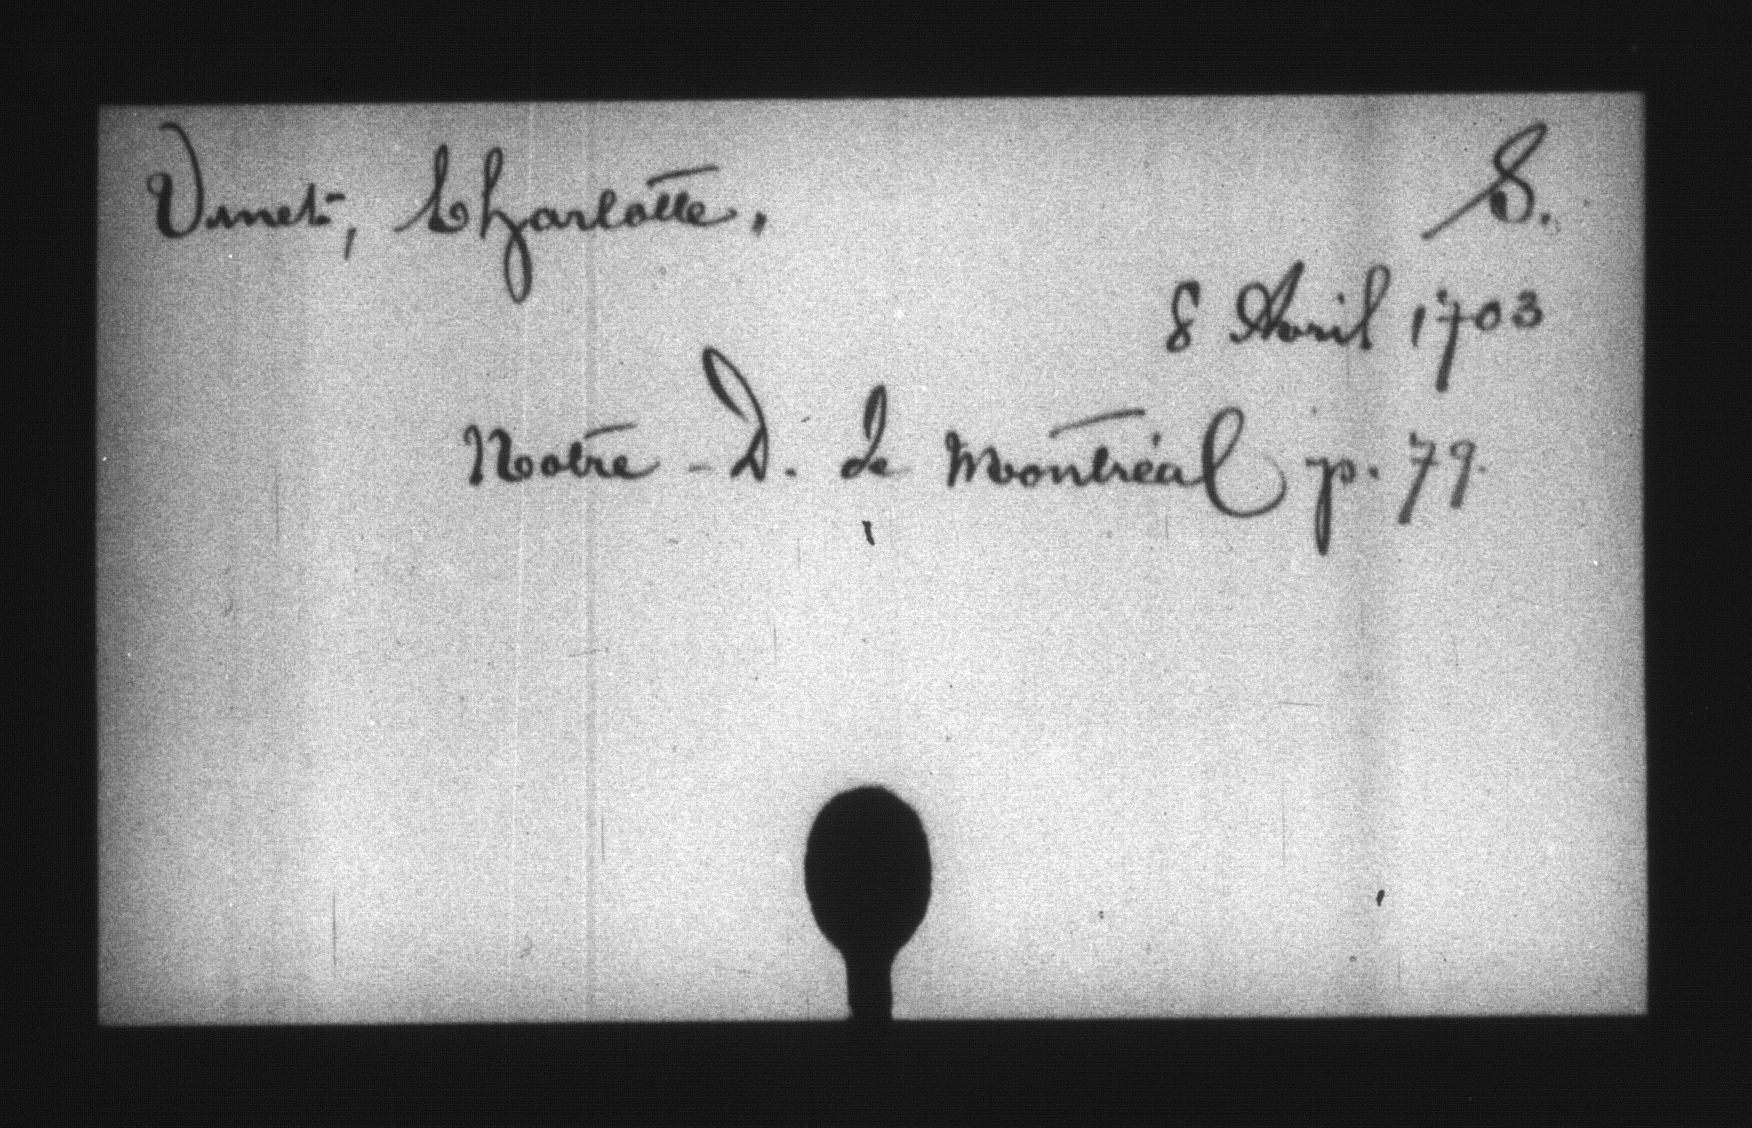 Vinet, Charlotte. S.
8 Avril 1703
Notre-D. de Montréal p. 79.